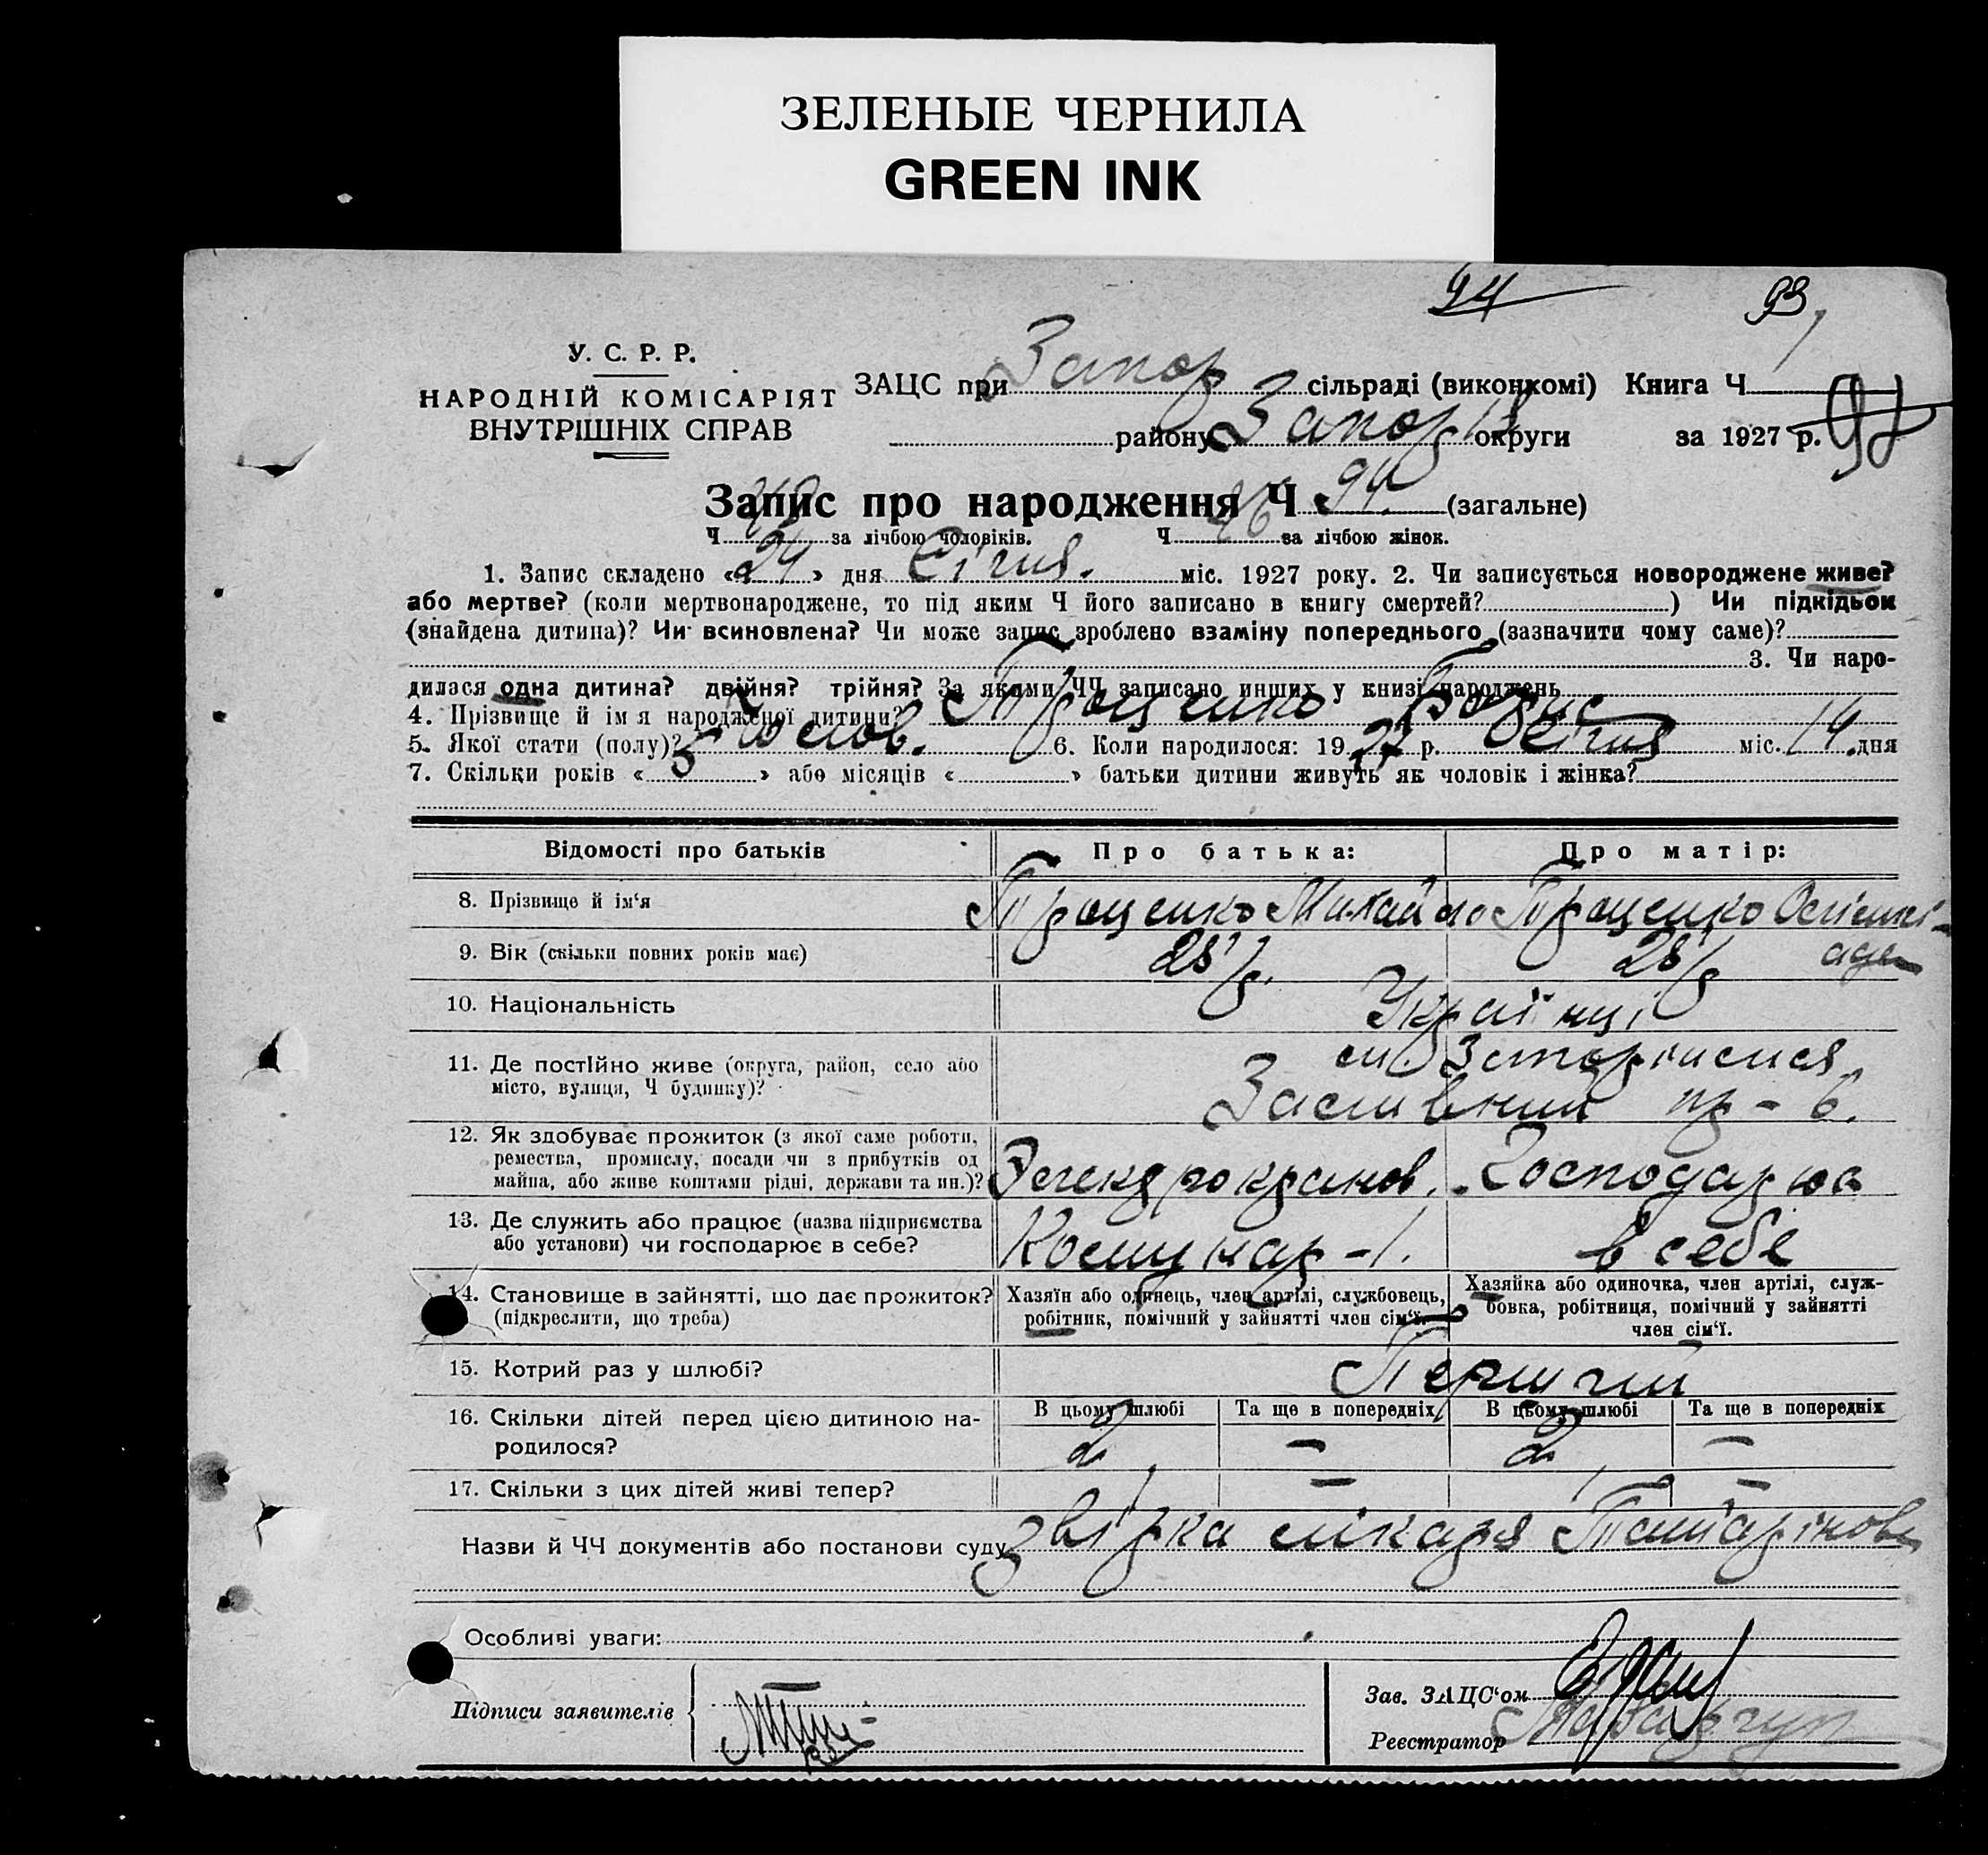 ЗЕЛЕНЫЕ ЧЕРНИЛА
GREEN INK
94 93
У. С. Р. Р.
НАРОДНІЙ КОМІСАРІЯТ
ВНУТРІШНІХ СПРАВ
ЗАЦС при Запор сільраді (виконкомі) Книга Ч
району Запоріз округи за 1927 р.
Запис про народження Ч 94. (загальне)
Ч за лічбою чоловіків. Ч 46 за лічбою жінок.
1. Запис складено «24» дня Січня. міс. 1927 року. 2. Чи записується новороджене живе?
або мертве? (коли мертвонароджене, то під яким Ч його записано в книгу смертей?) Чи підкідьок
(знайдена дитина)? Чи всиновлена? Чи може запис зроблено взаміну попереднього (зазначити чому саме)?
3. Чи наро-
дилася одна дитина? двійня? трійня? За якими ЧЧ записано инших у книзі народжень
4. Прізвище й ім я народженої дитини? Троценко Борис
5. Якої стати (полу)? Чолов. 6. Коли народилося: 1927 р. Січня міс. 14. дня
7. Скільки років « 5 » або місяців « » батьки дитини живуть як чоловік і жінка?
Відомості про батьків Про батька: Про матір:
8. Прізвище й ім‘я Троценко Михайло Троценко
9. Вік (скільки повних років має) 28 р. 28 р
10. Національність Українці
11. Де постійно живе (округа, район, село або
місто, вулиця, Ч будинку)?
пр - 6.
12. Як здобуває прожиток (з якої саме роботи,
ремества, промислу, посади чи з прибутків од
майна, або живе коштами рідні, держави та ин.)? Електрокранов. Господарює
13. Де служить або працює (назва підприємства
або установи) чи господарює в себе? Комунар - 1. в себе
14. Становище в зайнятті, що дає прожиток?
(підкреслити, що треба)
Хазяїн або одинець, член артілі, службовець,
робітник, помічний у зайнятті член сім‘ї.
Хазяйка або одиночка, член артілі, служ-
бовка, робітниця, помічний у зайнятті
член сім‘ї.
15. Котрий раз у шлюбі? Перший
16. Скільки дітей перед цією дитиною на-
родилося?
В цьому шлюбі Та ще в попередніх В цьому шлюбі Та ще в попередніх
2 — 2 —
17. Скільки з цих дітей живі тепер? 1 — 1 —
Назви й ЧЧ документів або постанови суду звірка лікаря
Особливі уваги:
Підписи заявителів
Зав. ЗАЦС‘ом
Реєстратор